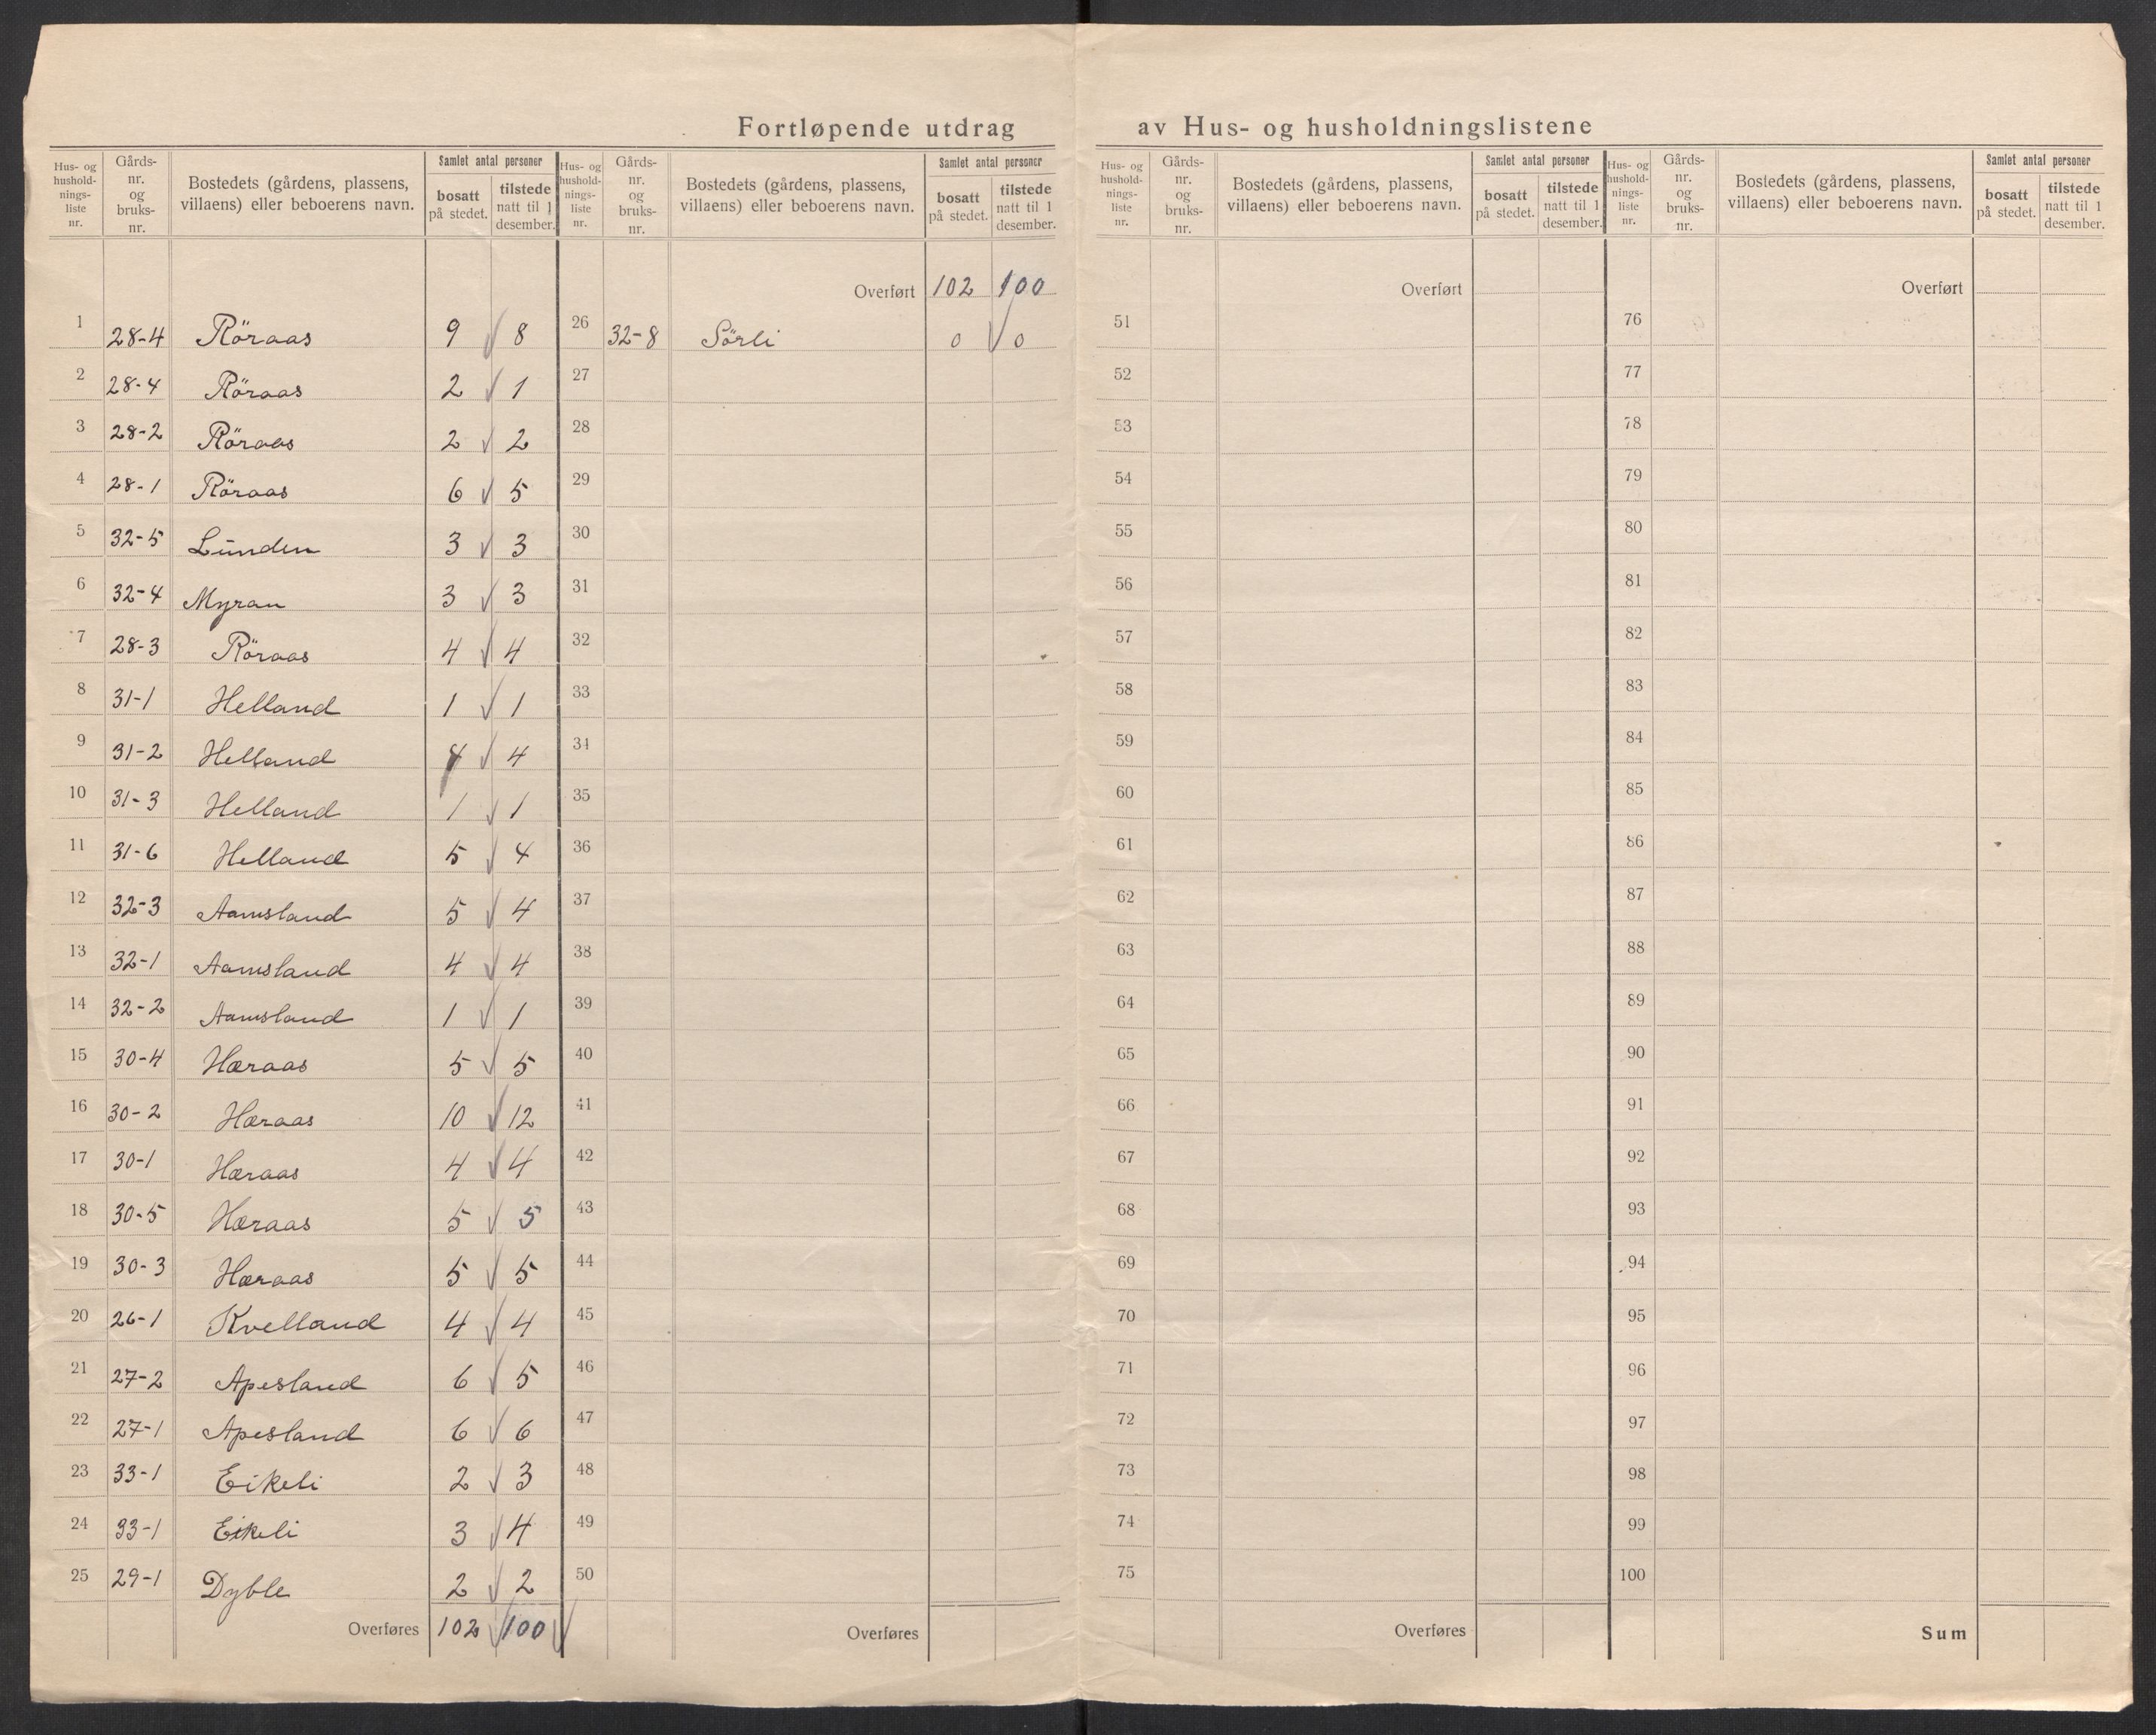 Fortløpende utdrag av Hus- og husholdningslistene
Hus- og husholdnings-liste nr. Gårds-nr. og bruks-nr. Bostedets (gårdens, plassens, villaens) eller beboerens navn. Samlet antal personer bosatt på stedet. tilstede natt til 1 desember.
Hus- og husholdnings-liste nr. Gårds-nr. og bruks-nr. Bostedets (gårdens, plassens, villaens) eller beboerens navn. Samlet antal personer bosatt på stedet. tilstede natt til 1 desember.
Hus- og husholdnings-liste nr. Gårds-nr. og bruks-nr. Bostedets (gårdens, plassens, villaens) eller beboerens navn. Samlet antal personer bosatt på stedet. tilstede natt til 1 desember.
Hus- og husholdnings-liste nr. Gårds-nr. og bruks-nr. Bostedets (gårdens, plassens, villaens) eller beboerens navn. Samlet antal personer bosatt på stedet. tilstede natt til 1 desember.
1 28-4 Röraas 9 8
2 28-4 Röraas 2 1
3 28-2 Röraas 2 2
4 28-1 Röraas 6 5
5 32-5 Lunden 3 3
6 32-4 Myran 3 3
7 28-3 Röraas 4 4
8 31-1 Helland 1 1
9 31-2 Helland 4 4
10 31-3 Helland 1 1
11 31-6 Helland 5 4
12 32-3 Aamsland 5 4
13 32-1 Aamsland 4 4
14 32-2 Aamsland 1 1
15 30-4 Hæraas 5 5
16 30-2 Hæraas 10 12
17 30-1 Hæraas 4 4
18 30-5 Hæraas 5 5
19 30-3 Hæraas 5 5
20 26-1 Kvelland 4 4
21 27-2 Apesland 6 5
22 27-1 Apesland 6 6
23 33-1 Eikeli 2 3
24 33-1 Eikeli 3 4
25 29-1 Dyble 2 2
Overføres 102 100
Overført 102 100
26 32-8 Sörli 0 0
27
28
29
30
31
32
33
34
35
36
37
38
39
40
41
42
43
44
45
46
47
48
49
50
Overføres
Overført
51
52
53
54
55
56
57
58
59
60
61
62
63
64
65
66
67
68
69
70
71
72
73
74
75
Overføres
Overført
76
77
78
79
80
81
82
83
84
85
86
87
88
89
90
91
92
93
94
95
96
97
98
99
100
Sum